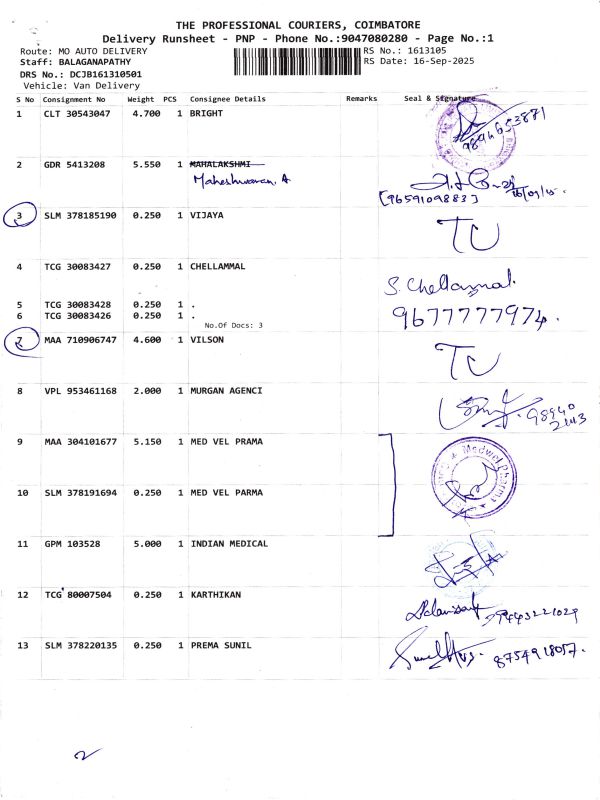 THE PROFESSIONAL COURIERS, COIMBATORE
Delivery Runsheet - PNP - Phone No.:9047080280 - Page No.:1
Route: MO AUTO DELIVERY RS No.: 1613105
Staff: BALAGANAPATHY RS Date: 16-Sep-2025
DRS No.: DCJB161310501
Vehicle: Van Delivery
S No Consignment No Weight PCS Consignee Details Remarks Seal & Signature
1 CLT 30543047 4.700 1 BRIGHT 9894653871
2 GDR 5413208 5.550 1 MAHALAKSHMI
Maheshwaran. A
[9659109883]
3 SLM 378185190 0.250 1 VIJAYA TC
4 TCG 30083427 0.250 1 CHELLAMMAL S. Chellammal.
5 TCG 30083428 0.250 1 .
6 TCG 30083426 0.250 1 . 9677777974.
No.Of Docs: 3
7 MAA 710906747 4.600 1 VILSON TC
8 VPL 953461168 2.000 1 MURGAN AGENCI
9 MAA 304101677 5.150 1 MED VEL PRAMA
Medwel Pharma
10 SLM 378191694 0.250 1 MED VEL PARMA
11 GPM 103528 5.000 1 INDIAN MEDICAL
12 TCG 80007504 0.250 1 KARTHIKAN 99443221029
13 SLM 378220135 0.250 1 PREMA SUNIL 8754918057.
2